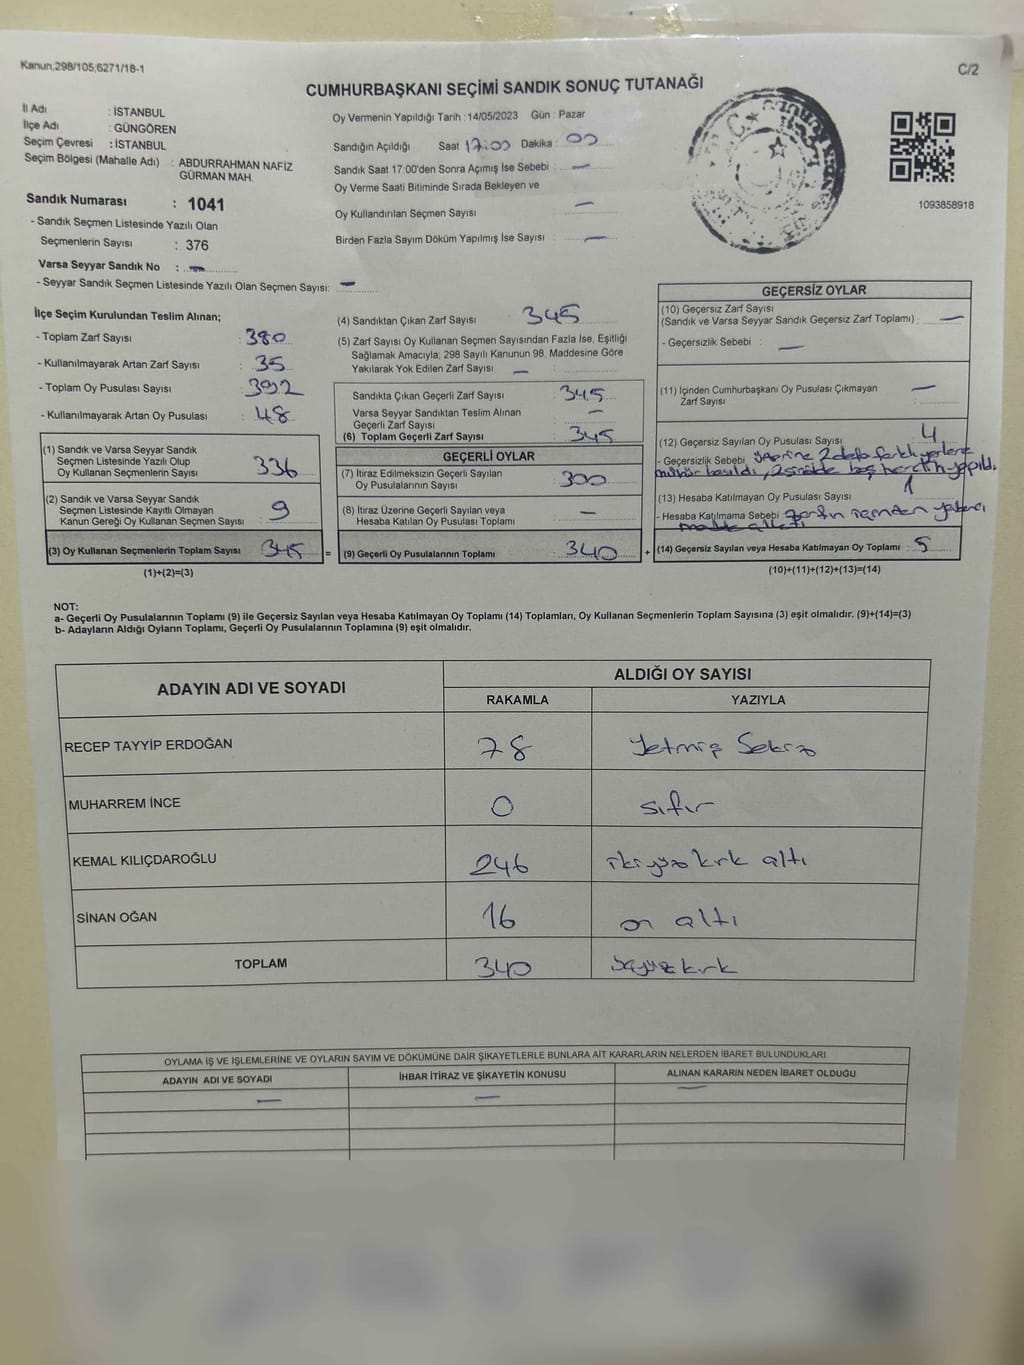 Kanun;298/105;6271/18-1
C/2
CUMHURBAŞKANI SEÇİMİ SANDIK SONUÇ TUTANAĞI
İl Adı : İSTANBUL
İlçe Adı : GÜNGÖREN
Seçim Çevresi : İSTANBUL
Seçim Bölgesi (Mahalle Adı) : ABDURRAHMAN NAFİZ
GÜRMAN MAH.
Sandık Numarası : 1041
- Sandık Seçmen Listesinde Yazılı Olan
Seçmenlerin Sayısı : 376
Varsa Seyyar Sandık No : —
- Seyyar Sandık Seçmen Listesinde Yazılı Olan Seçmen Sayısı: —
Oy Vermenin Yapıldığı Tarih : 14/05/2023 Gün : Pazar
Sandığın Açıldığı Saat 17:00 Dakika : 00
Sandık Saat 17:00'den Sonra Açımış İse Sebebi : —
Oy Verme Saati Bitiminde Sırada Bekleyen ve
Oy Kullandırılan Seçmen Sayısı : —
Birden Fazla Sayım Döküm Yapılmış İse Sayısı : —
1093858918
İlçe Seçim Kurulundan Teslim Alınan;
- Toplam Zarf Sayısı : 380
- Kullanılmayarak Artan Zarf Sayısı : 35
- Toplam Oy Pusulası Sayısı : 392
- Kullanılmayarak Artan Oy Pusulası : 48
(1) Sandık ve Varsa Seyyar Sandık
Seçmen Listesinde Yazılı Olup
Oy Kullanan Seçmenlerin Sayısı : 336
(2) Sandık ve Varsa Seyyar Sandık
Seçmen Listesinde Kayıtlı Olmayan
Kanun Gereği Oy Kullanan Seçmen Sayısı : 9
(3) Oy Kullanan Seçmenlerin Toplam Sayısı : 345 =
(1)+(2)=(3)
(4) Sandıktan Çıkan Zarf Sayısı : 345
(5) Zarf Sayısı Oy Kullanan Seçmen Sayısından Fazla İse, Eşitliği
Sağlamak Amacıyla; 298 Sayılı Kanunun 98. Maddesine Göre
Yakılarak Yok Edilen Zarf Sayısı : —
Sandıkta Çıkan Geçerli Zarf Sayısı : 345
Varsa Seyyar Sandıktan Teslim Alınan : —
Geçerli Zarf Sayısı
(6) Toplam Geçerli Zarf Sayısı : 345
GEÇERLİ OYLAR
(7) İtiraz Edilmeksizin Geçerli Sayılan
Oy Pusulalarının Sayısı : 300
(8) İtiraz Üzerine Geçerli Sayılan veya
Hesaba Katılan Oy Pusulası Toplamı : —
(9) Geçerli Oy Pusulalarının Toplamı : 340 +
GEÇERSİZ OYLAR
(10) Geçersiz Zarf Sayısı
(Sandık ve Varsa Seyyar Sandık Geçersiz Zarf Toplamı) : —
- Geçersizlik Sebebi : —
(11) İçinden Cumhurbaşkanı Oy Pusulası Çıkmayan : —
Zarf Sayısı
(12) Geçersiz Sayılan Oy Pusulası Sayısı : 4
- Geçersizlik Sebebi : üzerine 2 defa farklı yerlere
mühür basıldı,
(13) Hesaba Katılmayan Oy Pusulası Sayısı : 1
- Hesaba Katılmama Sebebi : zarfın içinden yabancı
madde
(14) Geçersiz Sayılan veya Hesaba Katılmayan Oy Toplamı : 5
(10)+(11)+(12)+(13)=(14)
NOT:
a- Geçerli Oy Pusulalarının Toplamı (9) ile Geçersiz Sayılan veya Hesaba Katılmayan Oy Toplamı (14) Toplamları, Oy Kullanan Seçmenlerin Toplam Sayısına (3) eşit olmalıdır. (9)+(14)=(3)
b- Adayların Aldığı Oyların Toplamı, Geçerli Oy Pusulalarının Toplamına (9) eşit olmalıdır.
ADAYIN ADI VE SOYADI
ALDIĞI OY SAYISI
RAKAMLA YAZIYLA
RECEP TAYYİP ERDOĞAN 78 Yetmiş Sekiz
MUHARREM İNCE 0 sıfır
KEMAL KILIÇDAROĞLU 246 ikiyüz kırk altı
SİNAN OĞAN 16 on altı
TOPLAM 340 üçyüz kırk
OYLAMA İŞ VE İŞLEMLERİNE VE OYLARIN SAYIM VE DÖKÜMÜNE DAİR ŞİKAYETLERLE BUNLARA AİT KARARLARIN NELERDEN İBARET BULUNDUKLARI
ADAYIN ADI VE SOYADI İHBAR İTİRAZ VE ŞİKAYETİN KONUSU ALINAN KARARIN NEDEN İBARET OLDUĞU
— — —